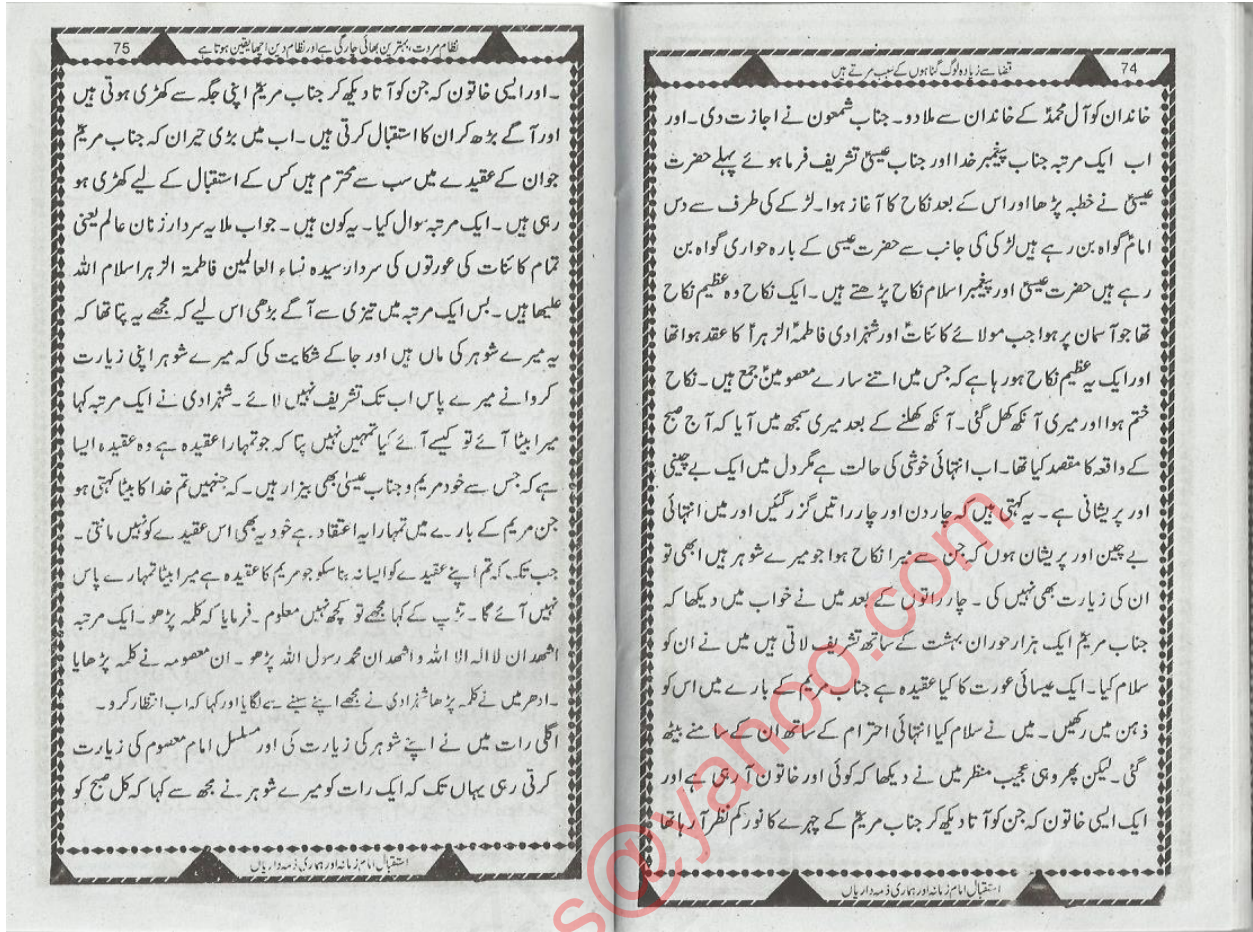 74
قضا سے زیادہ لوگ گناہوں کے سبب مرتے ہیں
خاندان کو آل محمدؐ کے خاندان سے ملا دو۔ جناب شمعون نے اجازت دی۔ اور
اب ایک مرتبہ جناب پیغمبر خدا اور جناب عیسیٰؑ تشریف فرما ہوئے پہلے حضرت
عیسیٰؑ نے خطبہ پڑھا اور اس کے بعد نکاح کا آغاز ہوا۔ لڑکے کی طرف سے دس
امامؑ گواہ بن رہے ہیں لڑکی کی جانب سے حضرت عیسی کے بارہ حواری گواہ بن
رہے ہیں حضرت عیسیٰؑ اور پیغمبر اسلام نکاح پڑھتے ہیں۔ ایک نکاح وہ عظیم نکاح
تھا جو آسمان پر ہوا جب مولائے کائناتؑ اور شہزادی فاطمہؑ الزہراؑ کا عقد ہوا تھا
اور ایک یہ عظیم نکاح ہو رہا ہے کہ جس میں اتنے سارے معصومینؑ جمع ہیں۔ نکاح
ختم ہوا اور میری آنکھ کھل گئی۔ آنکھ کھلنے کے بعد میری سمجھ میں آیا کہ آج صبح
کے واقعہ کا مقصد کیا تھا۔ اب انتہائی خوشی کی حالت ہے مگر دل میں ایک بے چینی
اور پریشانی ہے۔ یہ کہتی ہیں کہ چار دن اور چار راتیں گزر گئیں اور میں انتہائی
بے چین اور پریشان ہوں کہ جن سے میرا نکاح ہوا جو میرے شوہر ہیں ابھی تو
ان کی زیارت بھی نہیں کی۔ چار راتوں کے بعد میں نے خواب میں دیکھا کہ
جناب مریمؑ ایک ہزار حوران بہشت کے ساتھ تشریف لاتی ہیں میں نے ان کو
سلام کیا۔ ایک عیسائی عورت کا کیا عقیدہ ہے جناب مریم کے بارے میں اس کو
ذہن میں رکھیں۔ میں نے سلام کیا انتہائی احترام کے ساتھ ان کے سامنے بیٹھ
گئی۔ لیکن پھر وہی عجیب منظر میں نے دیکھا کہ کوئی اور خاتون آ رہی ہے اور
ایک ایسی خاتون کہ جن کو آتا دیکھ کر جناب مریمؑ کے چہرے کا نور کم نظر آ رہا تھا
استقبال امام زمانہ اور ہماری ذمہ داریاں
75
نظام مروت، بہترین بھائی چارگی ہے اور نظام دین اچھا یقین ہوتا ہے
۔ اور ایسی خاتون کہ جن کو آتا دیکھ کر جناب مریمؑ اپنی جگہ سے کھڑی ہوتی ہیں
اور آگے بڑھ کر ان کا استقبال کرتی ہیں۔ اب میں بڑی حیران کہ جناب مریمؑ
جو ان کے عقیدے میں سب سے محترم ہیں کس کے استقبال کے لیے کھڑی ہو
رہی ہیں۔ ایک مرتبہ سوال کیا۔ یہ کون ہیں۔ جواب ملا یہ سردار زنان عالم یعنی
تمام کائنات کی عورتوں کی سردار سیدہ نساء العالمین فاطمۃ الزہرا سلام اللہ
علیھا ہیں۔ بس ایک مرتبہ میں تیزی سے آگے بڑھی اس لیے کہ مجھے یہ پتا تھا کہ
یہ میرے شوہر کی ماں ہیں اور جا کے شکایت کی کہ میرے شوہر اپنی زیارت
کروانے میرے پاس اب تک تشریف نہیں لائے۔ شہزادی نے ایک مرتبہ کہا
میرا بیٹا آئے تو کیسے آئے کیا تمہیں نہیں پتا کہ جو تمہارا عقیدہ ہے وہ عقیدہ ایسا
ہے کہ جس سے خود مریم و جناب عیسیٰ بھی بیزار ہیں۔ کہ جنہیں تم خدا کا بیٹا کہتی ہو
جن مریم کے بارے میں تمہارا یہ اعتقاد ہے خود یہ بھی اس عقیدے کو نہیں مانتی۔
جب تک کہ تم اپنے عقیدے کو ایسا نہ بنا سکو جو مریم کا عقیدہ ہے میرا بیٹا تمہارے پاس
نہیں آئے گا۔ تڑپ کے کہا مجھے تو کچھ نہیں معلوم۔ فرمایا کہ کلمہ پڑھو۔ ایک مرتبہ
اشھد ان لا الہ الا اللہ و اشھد ان محمد رسول اللہ پڑھو۔ ان معصومہ نے کلمہ پڑھایا
۔ ادھر میں نے کلمہ پڑھا شہزادی نے مجھے اپنے سینے سے لگایا اور کہا کہ اب انتظار کرو۔
اگلی رات میں نے اپنے شوہر کی زیارت کی اور مسلسل امام معصوم کی زیارت
کرتی رہی یہاں تک کہ ایک رات کو میرے شوہر نے مجھ سے کہا کہ کل صبح کو
استقبال امام زمانہ اور ہماری ذمہ داریاں
s@yahoo.com